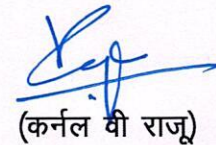 (कर्नल वी राजू)